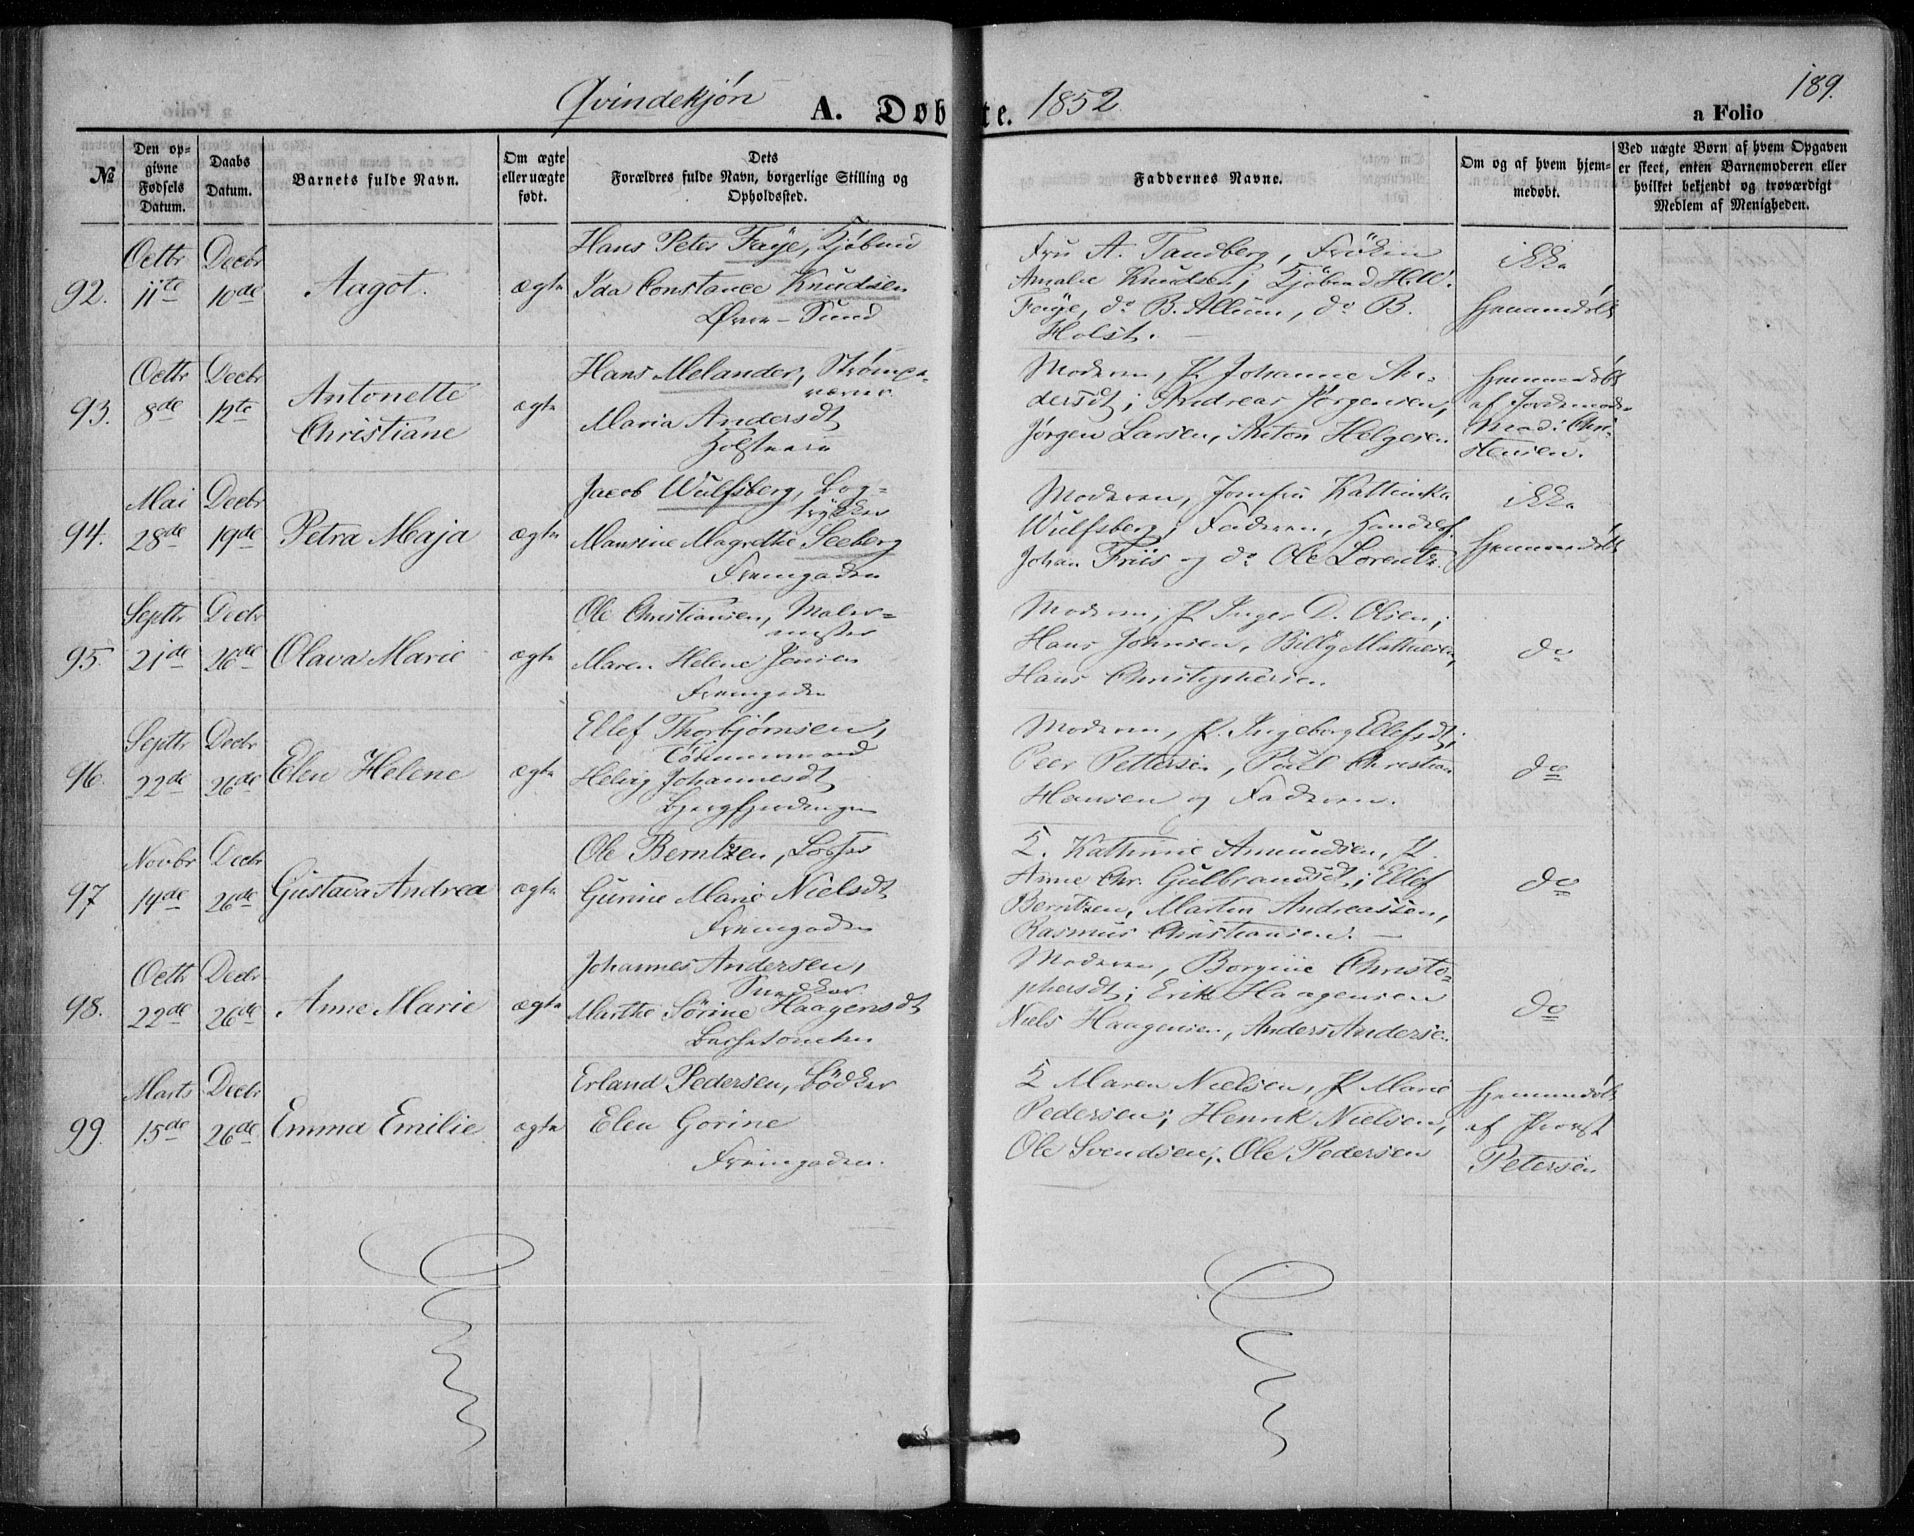 Qvindekjøn A. Døbte. 1852. a Folio 189.
№
Den opgivne Fødsels Datum.
Daabs Datum.
Barnets fulde Navn.
Om ægte eller uægte født.
Dets Forældres fulde Navn, borgerlige Stilling og Opholdssted.
Faddernes Navne.
Om og af hvem hjemmedøbt.
Ved uægte Børn af hvem Opgaven er skeet, enten Barnemoderen eller hvilket bekjendt og troværdigt Medlem af Menigheden.
92.
Octbr 11te
Decbr 10de
Aagot.
ægte
Hans Peter Faye, Kjøbmd
Ida Constance Knudsen
Øvre-Sund
Fru A. Tandberg, Frøken
Amalie Knudsen; Kjøbmd H. W.
Faye, do B. Allum, do B.
Holst.
ikke
hjemmedøbt
93.
Octbr 8de
Decbr 12te
Antonette
Christiane
ægte
Hans Melander, Strømpevæver
Maria Andersdt
Moderen, P. Johanne Andersdt; Andreas Jørgensen,
Jørgen Larsen, Anton Helgesen
hjemmedøbt
af Jordemoder
Mad: Christensen.
94.
Mai 28de
Decbr 19de
Petra Maja
ægte
Jacob Wulfsberg, Bogtrykker
Maurine Magrethe Seeberg
Fremgaden
Moderen, Jomfru Kattinka
Wulfsberg; Faderen, Handelsf.
Johan Friis og do Ole Lorentz.
ikke
hjemmedøbt
95.
Septbr 21de
Decbr 26de
Olava Marie
ægte
Ole Christiansen, Malermester
Maren Helene Jensen
Fremgaden
Moderen, P. Inger D. Olsen;
Hans Johnsen, Billy Mathiesen,
Hans Christophersen.
do
96.
Septbr 22de
Decbr 26de
Elen Helene
ægte
Ellef Thorbjørnsen,
Tømmermand
Helvig Johannesdt
Bjergfjerdingen
Moderen, P. Ingeborg Ellefsdt;
Peer Pettersen, Paul Christian
Hansen og Faderen.
do
97
Novbr 14de
Decbr 26de
Gustava Andrea
ægte
Ole Berntzen, Losser
Gurine Marie Nielsdt
Fremgaden
K. Kathrine Amundsen, P.
Anne Chr. Gulbrandsdt; Ellef
Berntzen, Martin Andreassen,
Rasmus Christiansen.
do
98.
Octbr 22de
Decbr 26de
Anne Marie
ægte
Johannes Andersen,
Snedker
Marthe Sørine Haagensdt
Moderen, Borgine Christophersdt; Erik Haagensen
Niels Haagensen, Anders Andersen
do
99.
Marts 15de
Decbr 26de
Emma Emilie
ægte
Erland Pedersen, Bødker
Elen Gorine
Fremgaden.
K Maren Nielsen, P Marie
Pedersen; Henrik Nielsen,
Ole Svendsen, Ole Pedersen
hjemmedøbt
af Provst
Petersen